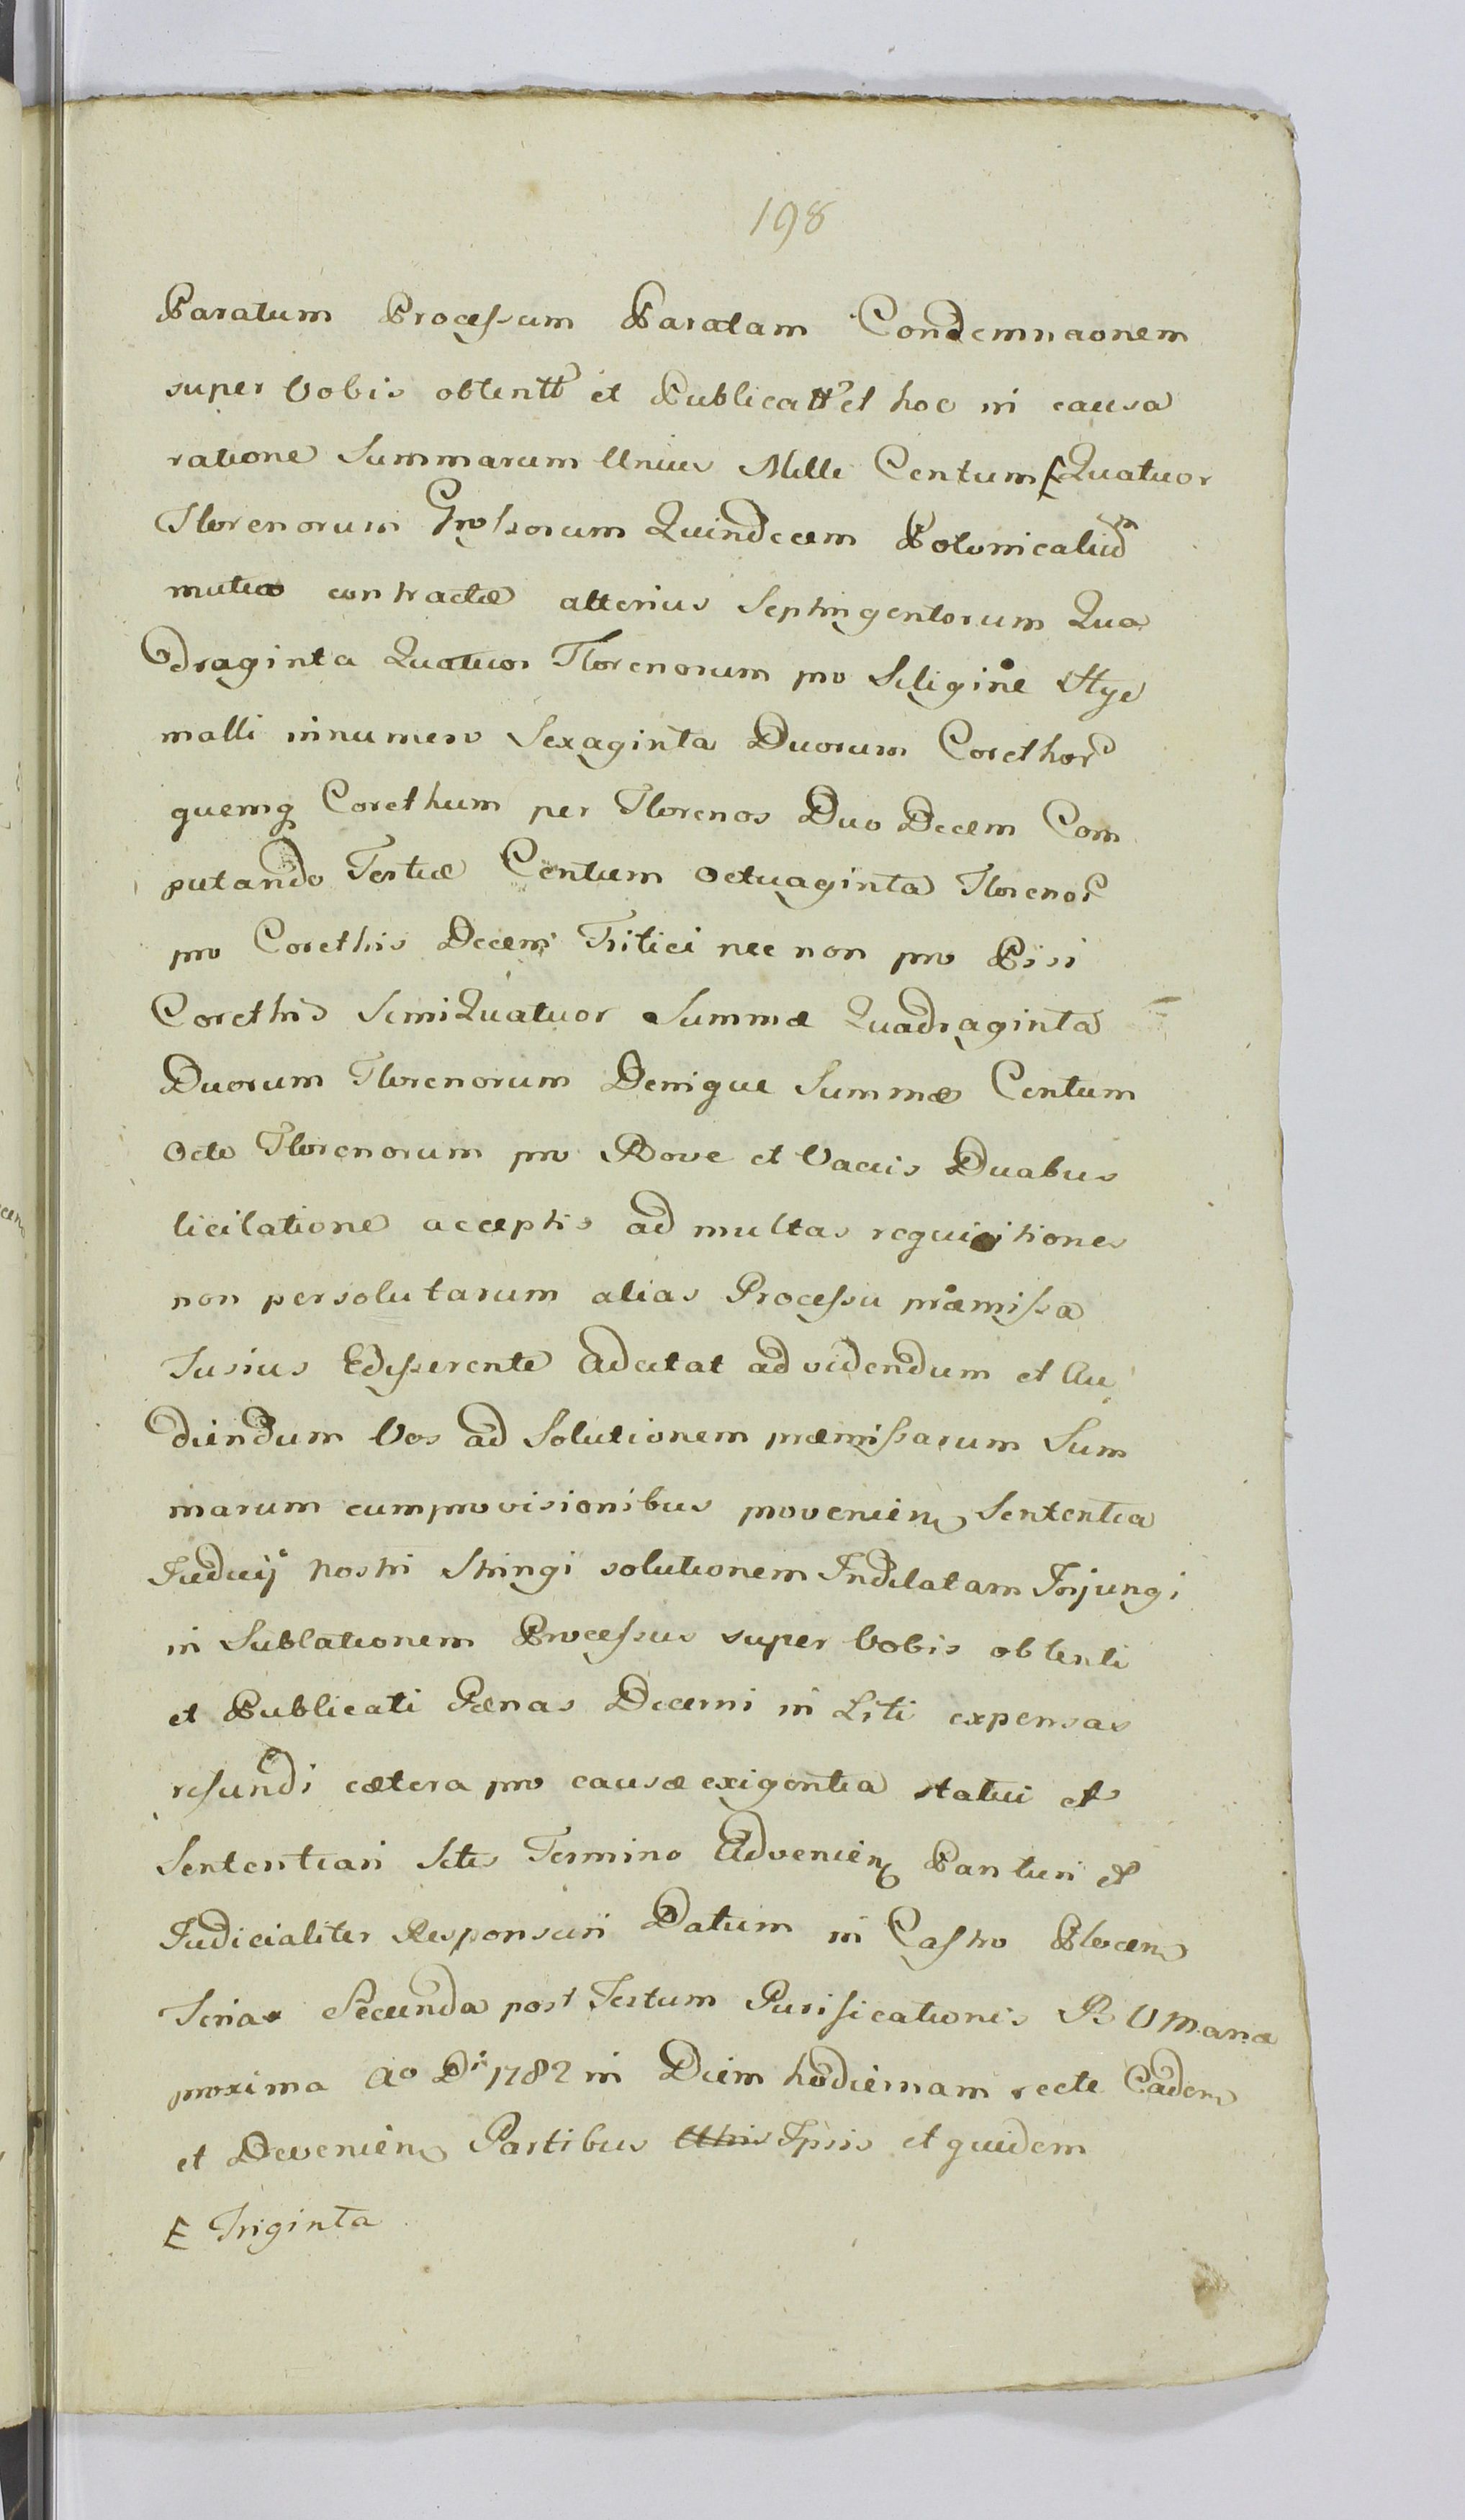 198
Paratum Processum Paratam Condemnaonem
super Vobis obtentt et Publicatt et hoc in causa
ratione Summarum Unius Mille Centum E Quatuor
Florenorum Grossorum Quindecem Polonicalium
mutuo contractae alterius Septingentorum Qua
draginta Quatuor Florenorum pro Siligine Hye
malli innumero Sexaginta Duorum Corethor
quemq Corethum per Florenos Duo Decem Com
putando Tertiae Centum octuaginta Florenor
pro Corethis Decem Tritici nec non pro Pisi
Corethis SemiQuatuor Summae Quadraginta
Duorum Florenorum Denique Summae Centum
Octo Florenorum pro Bove et Vaccis Duabus
licitatione acceptis ad multas requisitiones
non persolutarum alias Processu praemissa
Fusius Edisserente Adcitat ad videndum et Au
diendum Vos ad Solutionem praemissarum Sum
marum cumprovisionibus provenien Sententia
Judicij nostri Stringi solutionem Indilatam Injungi
in Sublationem Processus super Vobis obtenti
et Publicati Paenas Decerni in Liti expensas
refundi caetera pro causae exigentia statui et
Sententiari Sitis Termino Advenien Parituri et
Judicialiter Responsuri Datum in Castro Plocen
Feria Secunda post Festum Purificationis B V Mariae
proxima Ao Di 1782 in Diem hodiernam recte Caden
et Devenien Partibus Ipsis et quidem
E Triginta